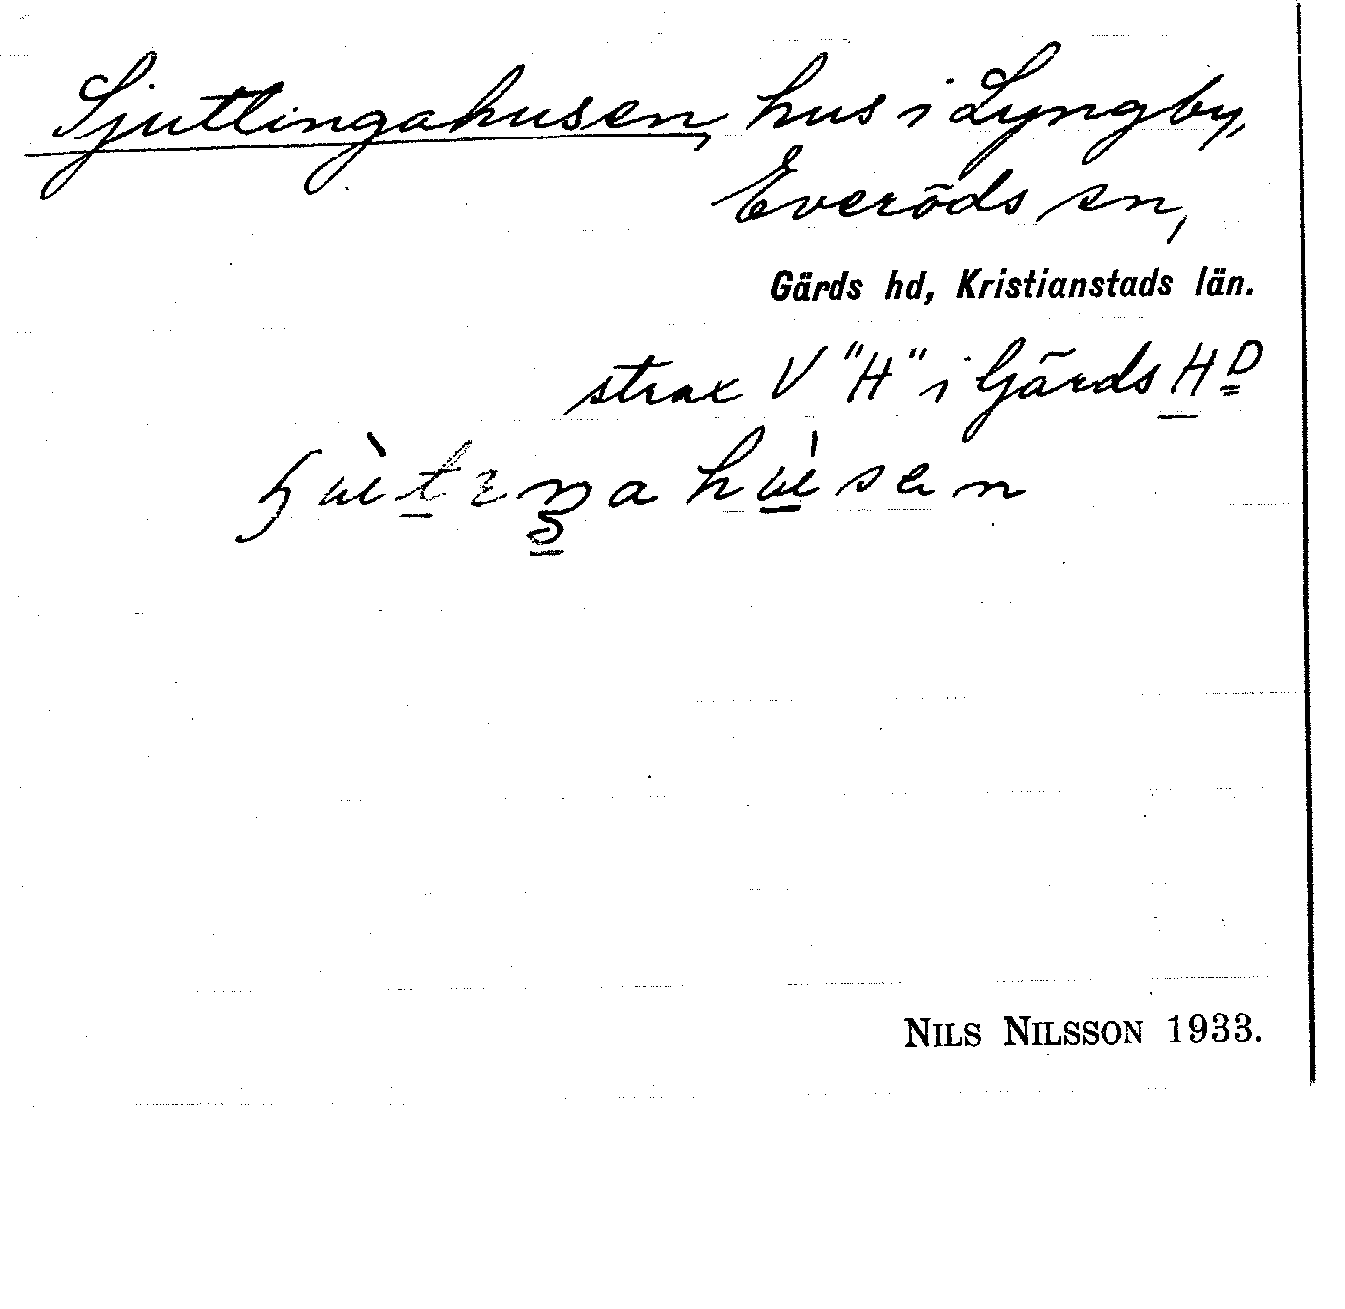 Sjutlingahusen, hus i Lyngby,
Everöds sn,
Gärds hd, Kristianstads län.
strax V "H" i Gärds HD
NILS NILSSON 1933.